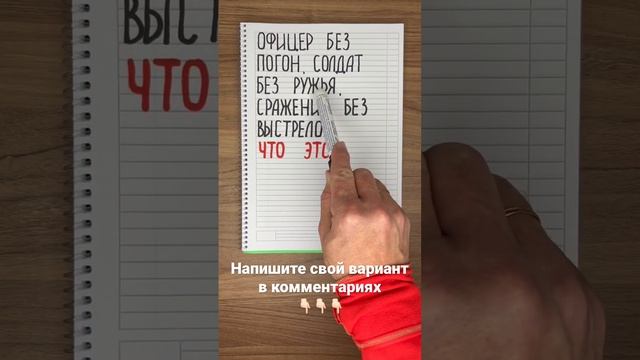 ОФИЦЕР БЕЗ
ПОГОН, СОЛДАТ
БЕЗ РУЖЬЯ,
СРАЖЕНИ БЕЗ
ВЫСТРЕЛО
ЧТО ЭТО
Напишите свой вариант
в комментариях
👇🏻👇🏻👇🏻
ВЫСТ
ЧТО